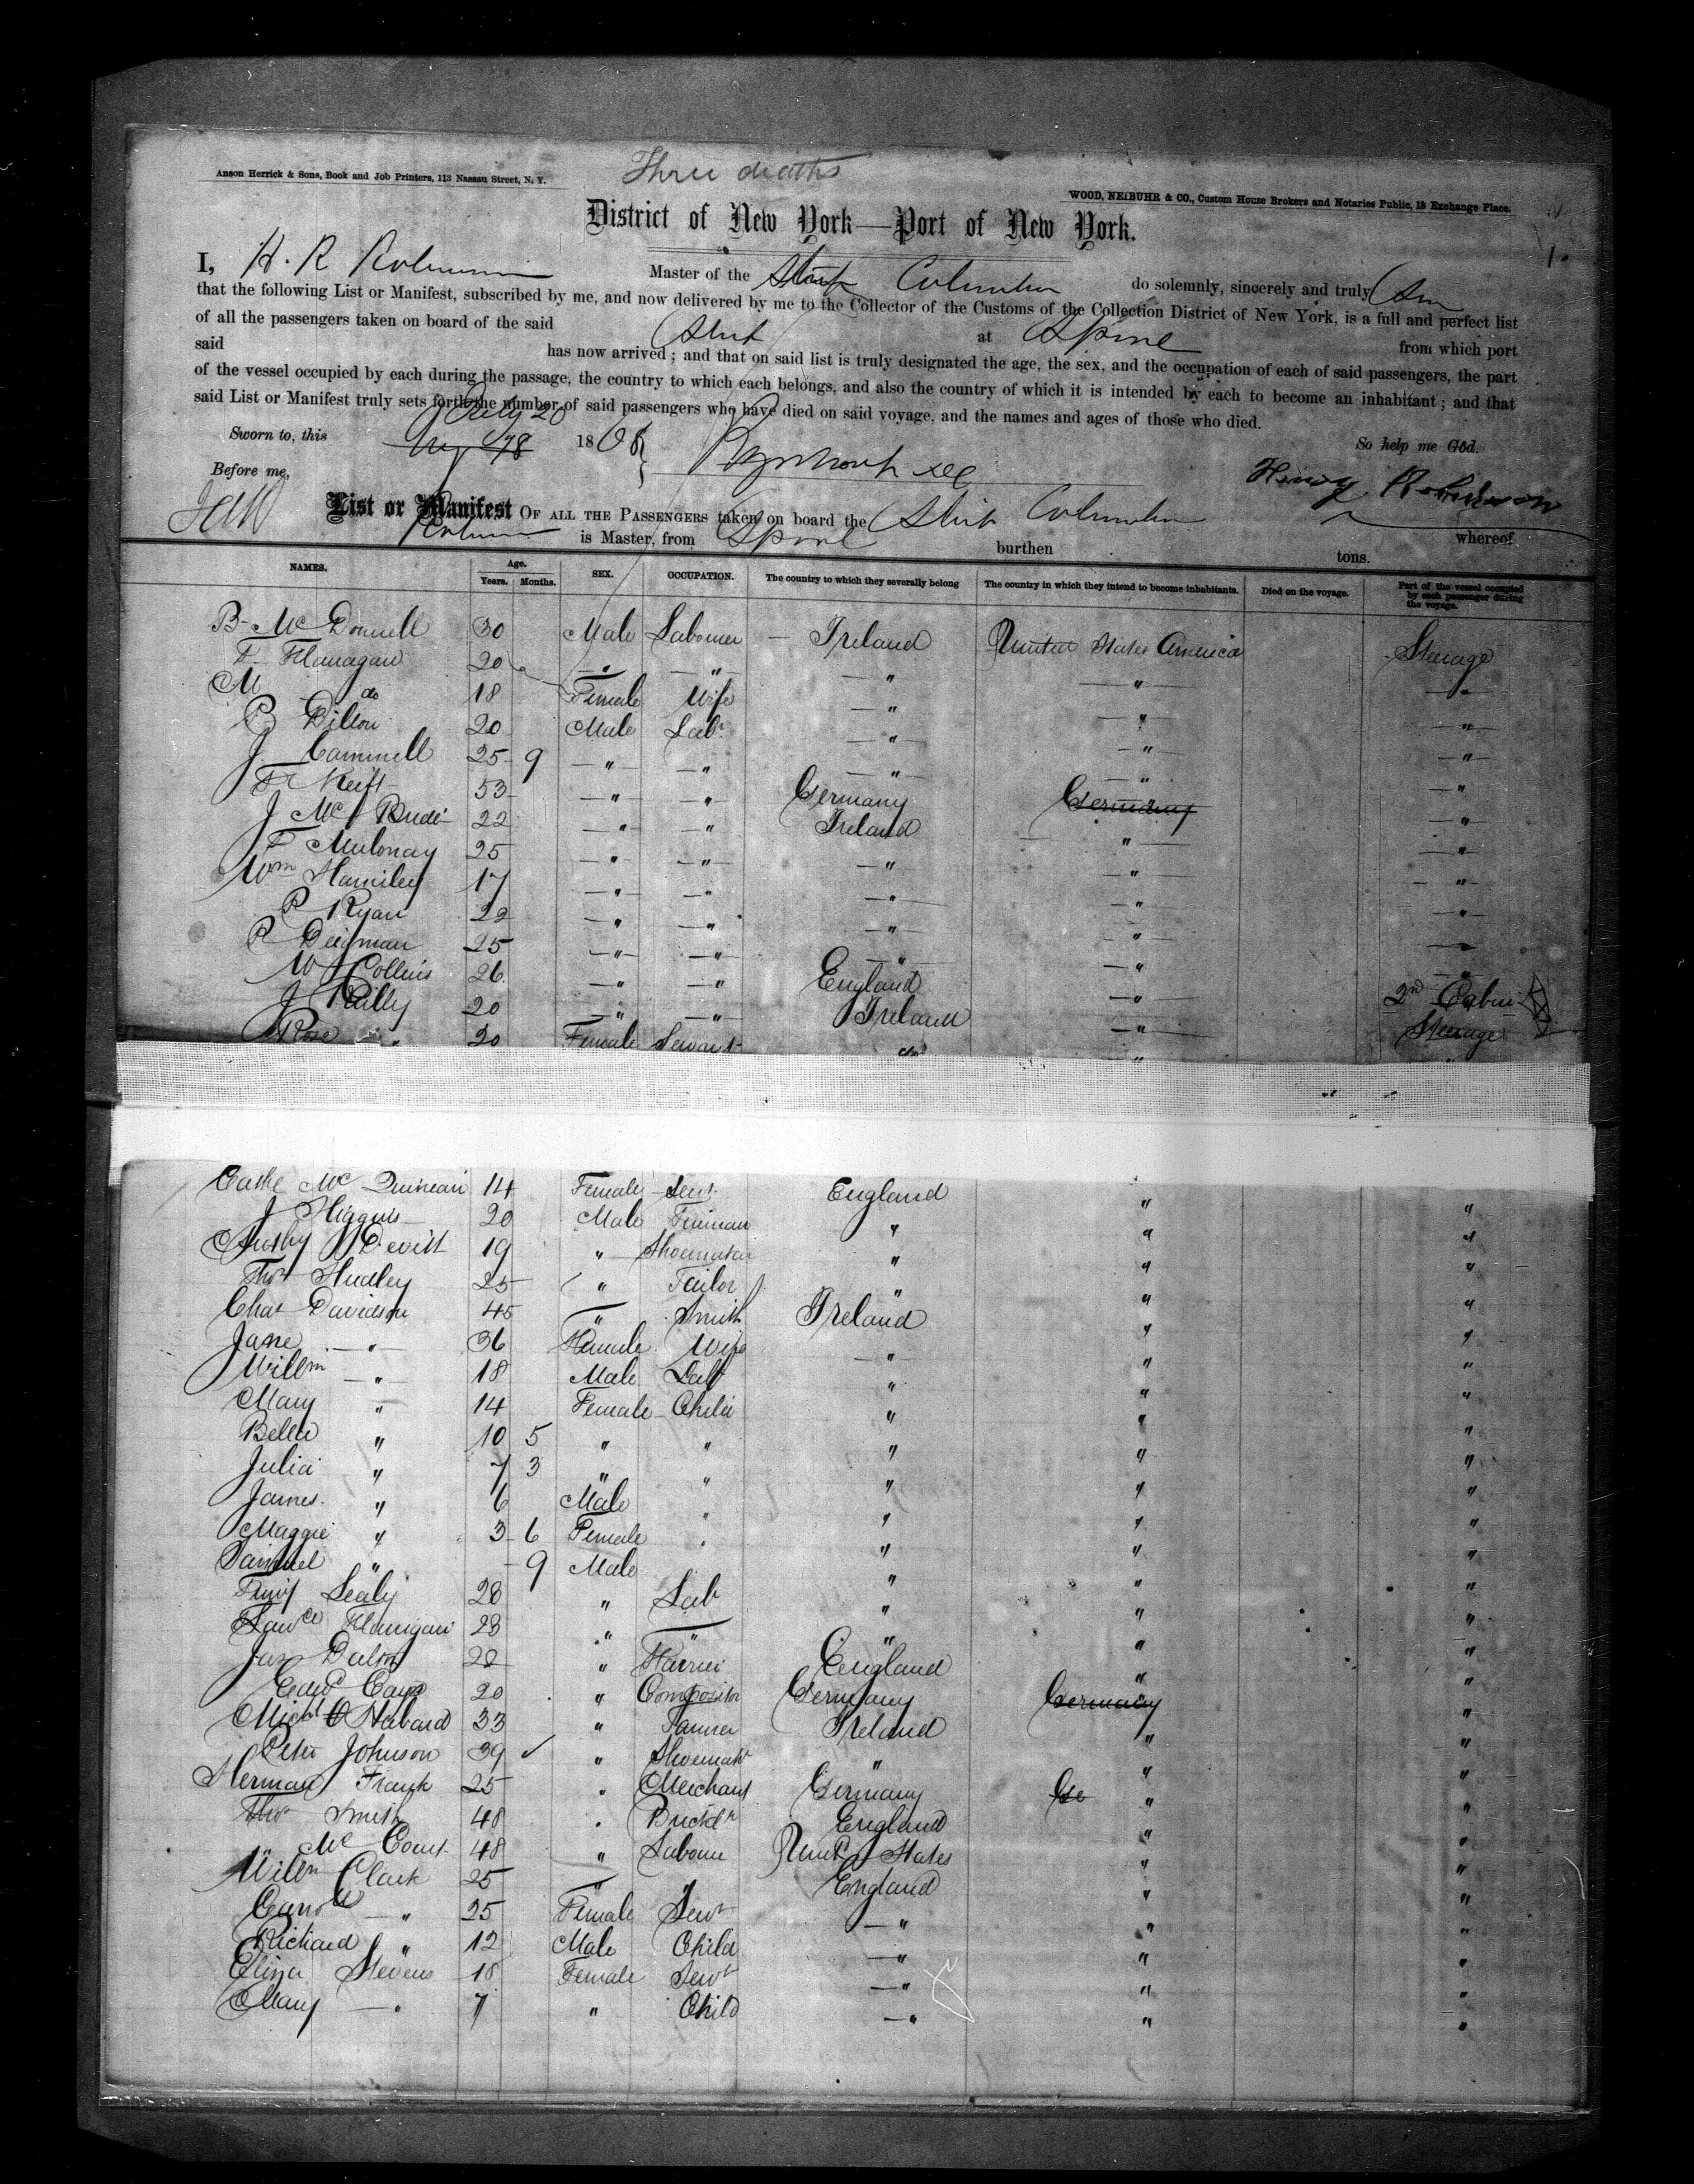 Three deaths
Anson Herrick & Sons, Book and Job Printers, 113 Nassau Street, N. Y.
WOOD, NEIBUHR & CO., Custom House Brokers and Notaries Public, 18 Exchange Place.
District of New York—Port of New York.
1.
I, H. R Robinson Master of the Ship Columbia do solemnly, sincerely and truly
that the following List or Manifest, subscribed by me, and now delivered by me to the Collector of the Customs of the Collection District of New York, is a full and perfect list
of all the passengers taken on board of the said Ship at Lpool from which port
said has now arrived; and that on said list is truly designated the age, the sex, and the occupation of each of said passengers, the part
of the vessel occupied by each during the passage, the country to which each belongs, and also the country of which it is intended by each to become an inhabitant; and that
said List or Manifest truly sets forth the number of said passengers who have died on said voyage, and the names and ages of those who died.
Sworn to, this July 20 1868 So help me God.
Before me, Henry Robinson
List or Manifest OF ALL THE PASSENGERS taken on board the Ship Columbia whereof
Robinson is Master, from Lpool burthen tons.
NAMES. Age. Years. Months. SEX. OCCUPATION. The country to which they severally belong The country in which they intend to become inhabitants. Died on the voyage. Part of the vessel occupied by each passenger during the voyage.
B. Mc Donnell 30 Male Labourer Ireland United States America Steerage
T. Flanagan 20 " " " " "
M do 18 Female Wife " " "
P Dillon 20 Male Labr " " "
J. Cammell 25 9 " " " " "
53 " " Germany Germany "
J Mc 22 " " Ireland " "
T Mulonay 25 " " " " "
Wm Hamiley 17 " " " " "
P Ryan 22 " " " " "
P Deigman 25 " " " " "
W Collins 26 " " England " 2nd Cabin
J Reilly 20 " " Ireland " Steerage
Rose " 20 Female Servant do " "
Cathe Mc Quinean 14 Female Servt England " "
J Higgins 20 Male Fireman " " "
Devitt 19 " Shoemaker " " "
Thos Hudley 25 " Tailor " " "
Chas Davidson 45 " Smith Ireland " "
Jane " 36 Female Wife " " "
Willm " 18 Male Labr " " "
Mary " 14 Female Child " " "
Bella " 10 5 " " " " "
Julia " 7 3 " " " " "
James " 6 Male " " " "
Maggie " 3 6 Female " " " "
Samuel " 9 Male " " "
Sealy 28 " Lab " " "
Lawce Flanigan 23 " " " " "
Jas Dalon 22 " England " "
Edwd 20 " Compositor Germany Germany "
Michl O Habard 33 " Tanner Ireland " "
Peter Johnson 39 " Shoemakr " " "
Herman Frank 25 " Merchant Germany Ge " "
Thos Smith 48 " Bricklr England " "
" Mc Court 48 " Labourer Unitd States " "
Willm Clark 25 " " England " "
" 25 Female Servt " " "
Richard " 12 Male Child " " "
Eliza Stevens 18 Female Servt " " "
Mary " 7 " Child " " "